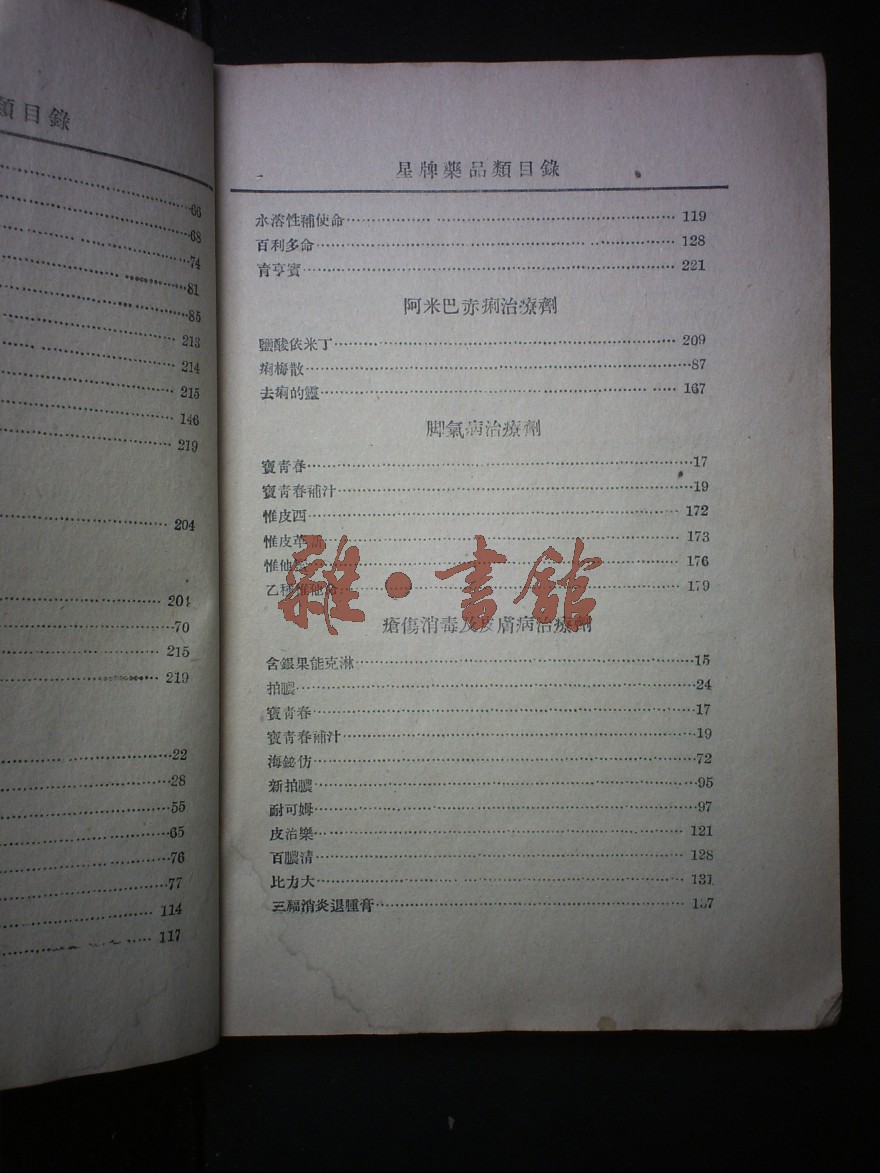 類目錄
66
68
74
81
85
213
214
215
146
219
204
204
70
215
219
22
28
55
65
76
77
114
117
星牌藥品類目錄
水溶性補使命 119
百利多命 128
育亨賓 221
阿米巴赤痢治療劑
鹽酸依米丁 209
痢梅散 87
去痢的靈 167
脚氣病治療劑
寶青春 17
寶青春補汁 19
惟皮西 172
惟皮 173
惟他 176
乙種惟他命 179
瘡傷消毒及皮膚病治療劑
含銀果能克淋 15
拍膿 24
寶青春 17
寶青春補汁 19
海鉍仿 72
新拍膿 95
耐可姆 97
皮治樂 121
百膿清 128
比力大 131
三福消炎退腫膏
雜·書館